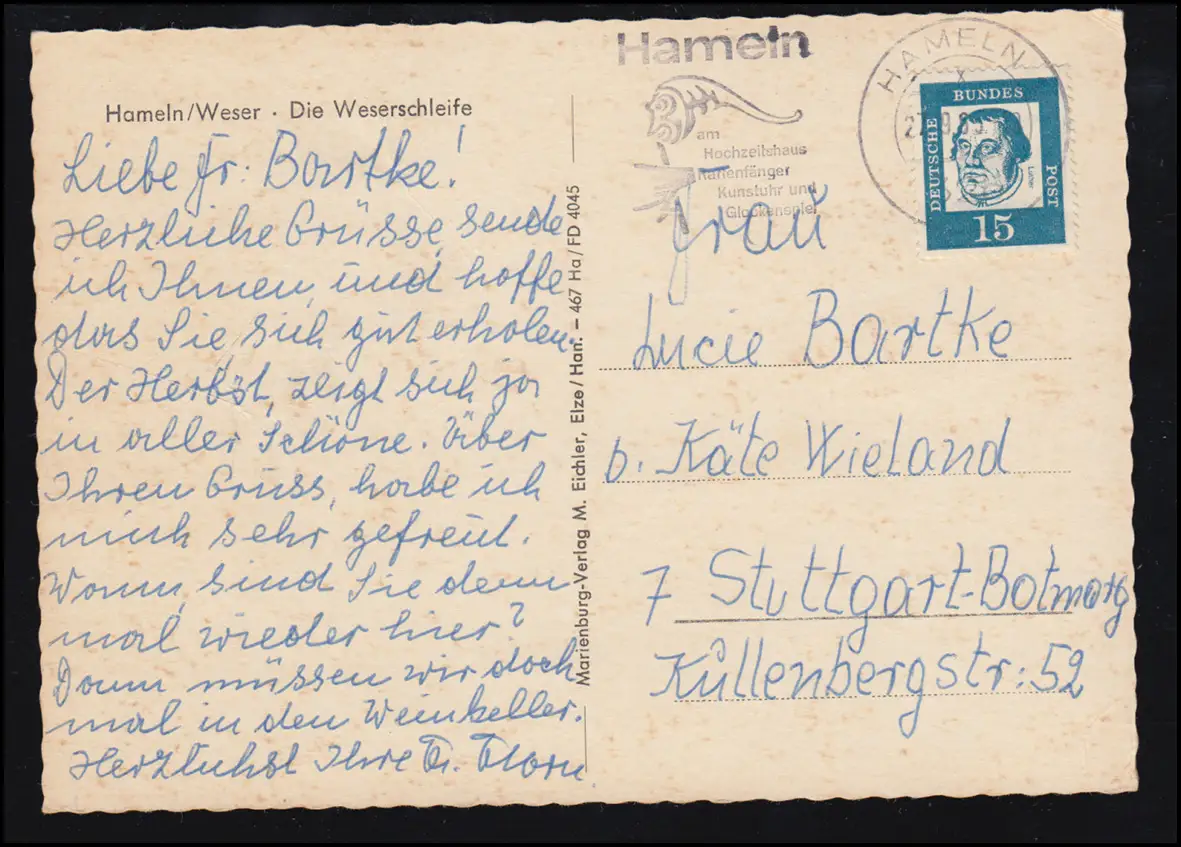 Hameln/Weser · Die Weserschleife
Liebe Fr: Bartke!
Herzliche Grüsse, sende
ich Ihnen, und hoffe
das Sie sich gut erholen.
Der Herbst, zeigt sich ja
in aller Schöne. Über
Ihren Gruss, habe ich
mich sehr gefreut.
Wann, sind Sie denn
mal wieder hier?
Dann müssen wir doch
mal in den Weinkeller.
Herzlichst Ihre Fr.
Marienburg-Verlag M. Eichler, Elze/Han. – 467 Ha/FD 4045
Hameln
am
Hochzeitshaus
Rattenfänger
Kunstuhr und
Glockenspiel
HAMELN
DEUTSCHE
BUNDES
POST
Luther
15
Frau
Lucie Bartke
b. Käte Wieland
7 Stuttgart-Botnang
Küllenbergstr: 52